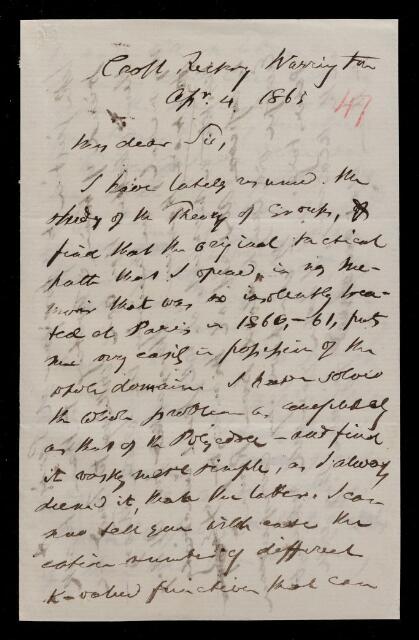 Croft Rectory Warrington
Apr. 4. 1865
47
My dear Sir,
I have lately resumed the
study of the Theory of Groups, &
find that the original tactical
path that I opened in my Me-
moir that was so insolently trea-
ted at Paris in 1860,-61, puts
me very easily in possession of the
whole domain. I have solved
the whole problem as completely
as that of the Polyedra - and find
it vastly more simple, as I always
deemed it, than the latter. I can
now tell you with ease the
entire number of different
k-valued functions that can